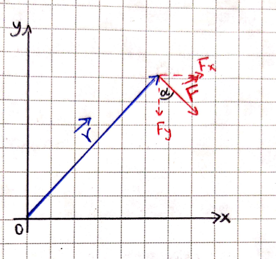 y
Fx
α
F
r
Fy
0
x